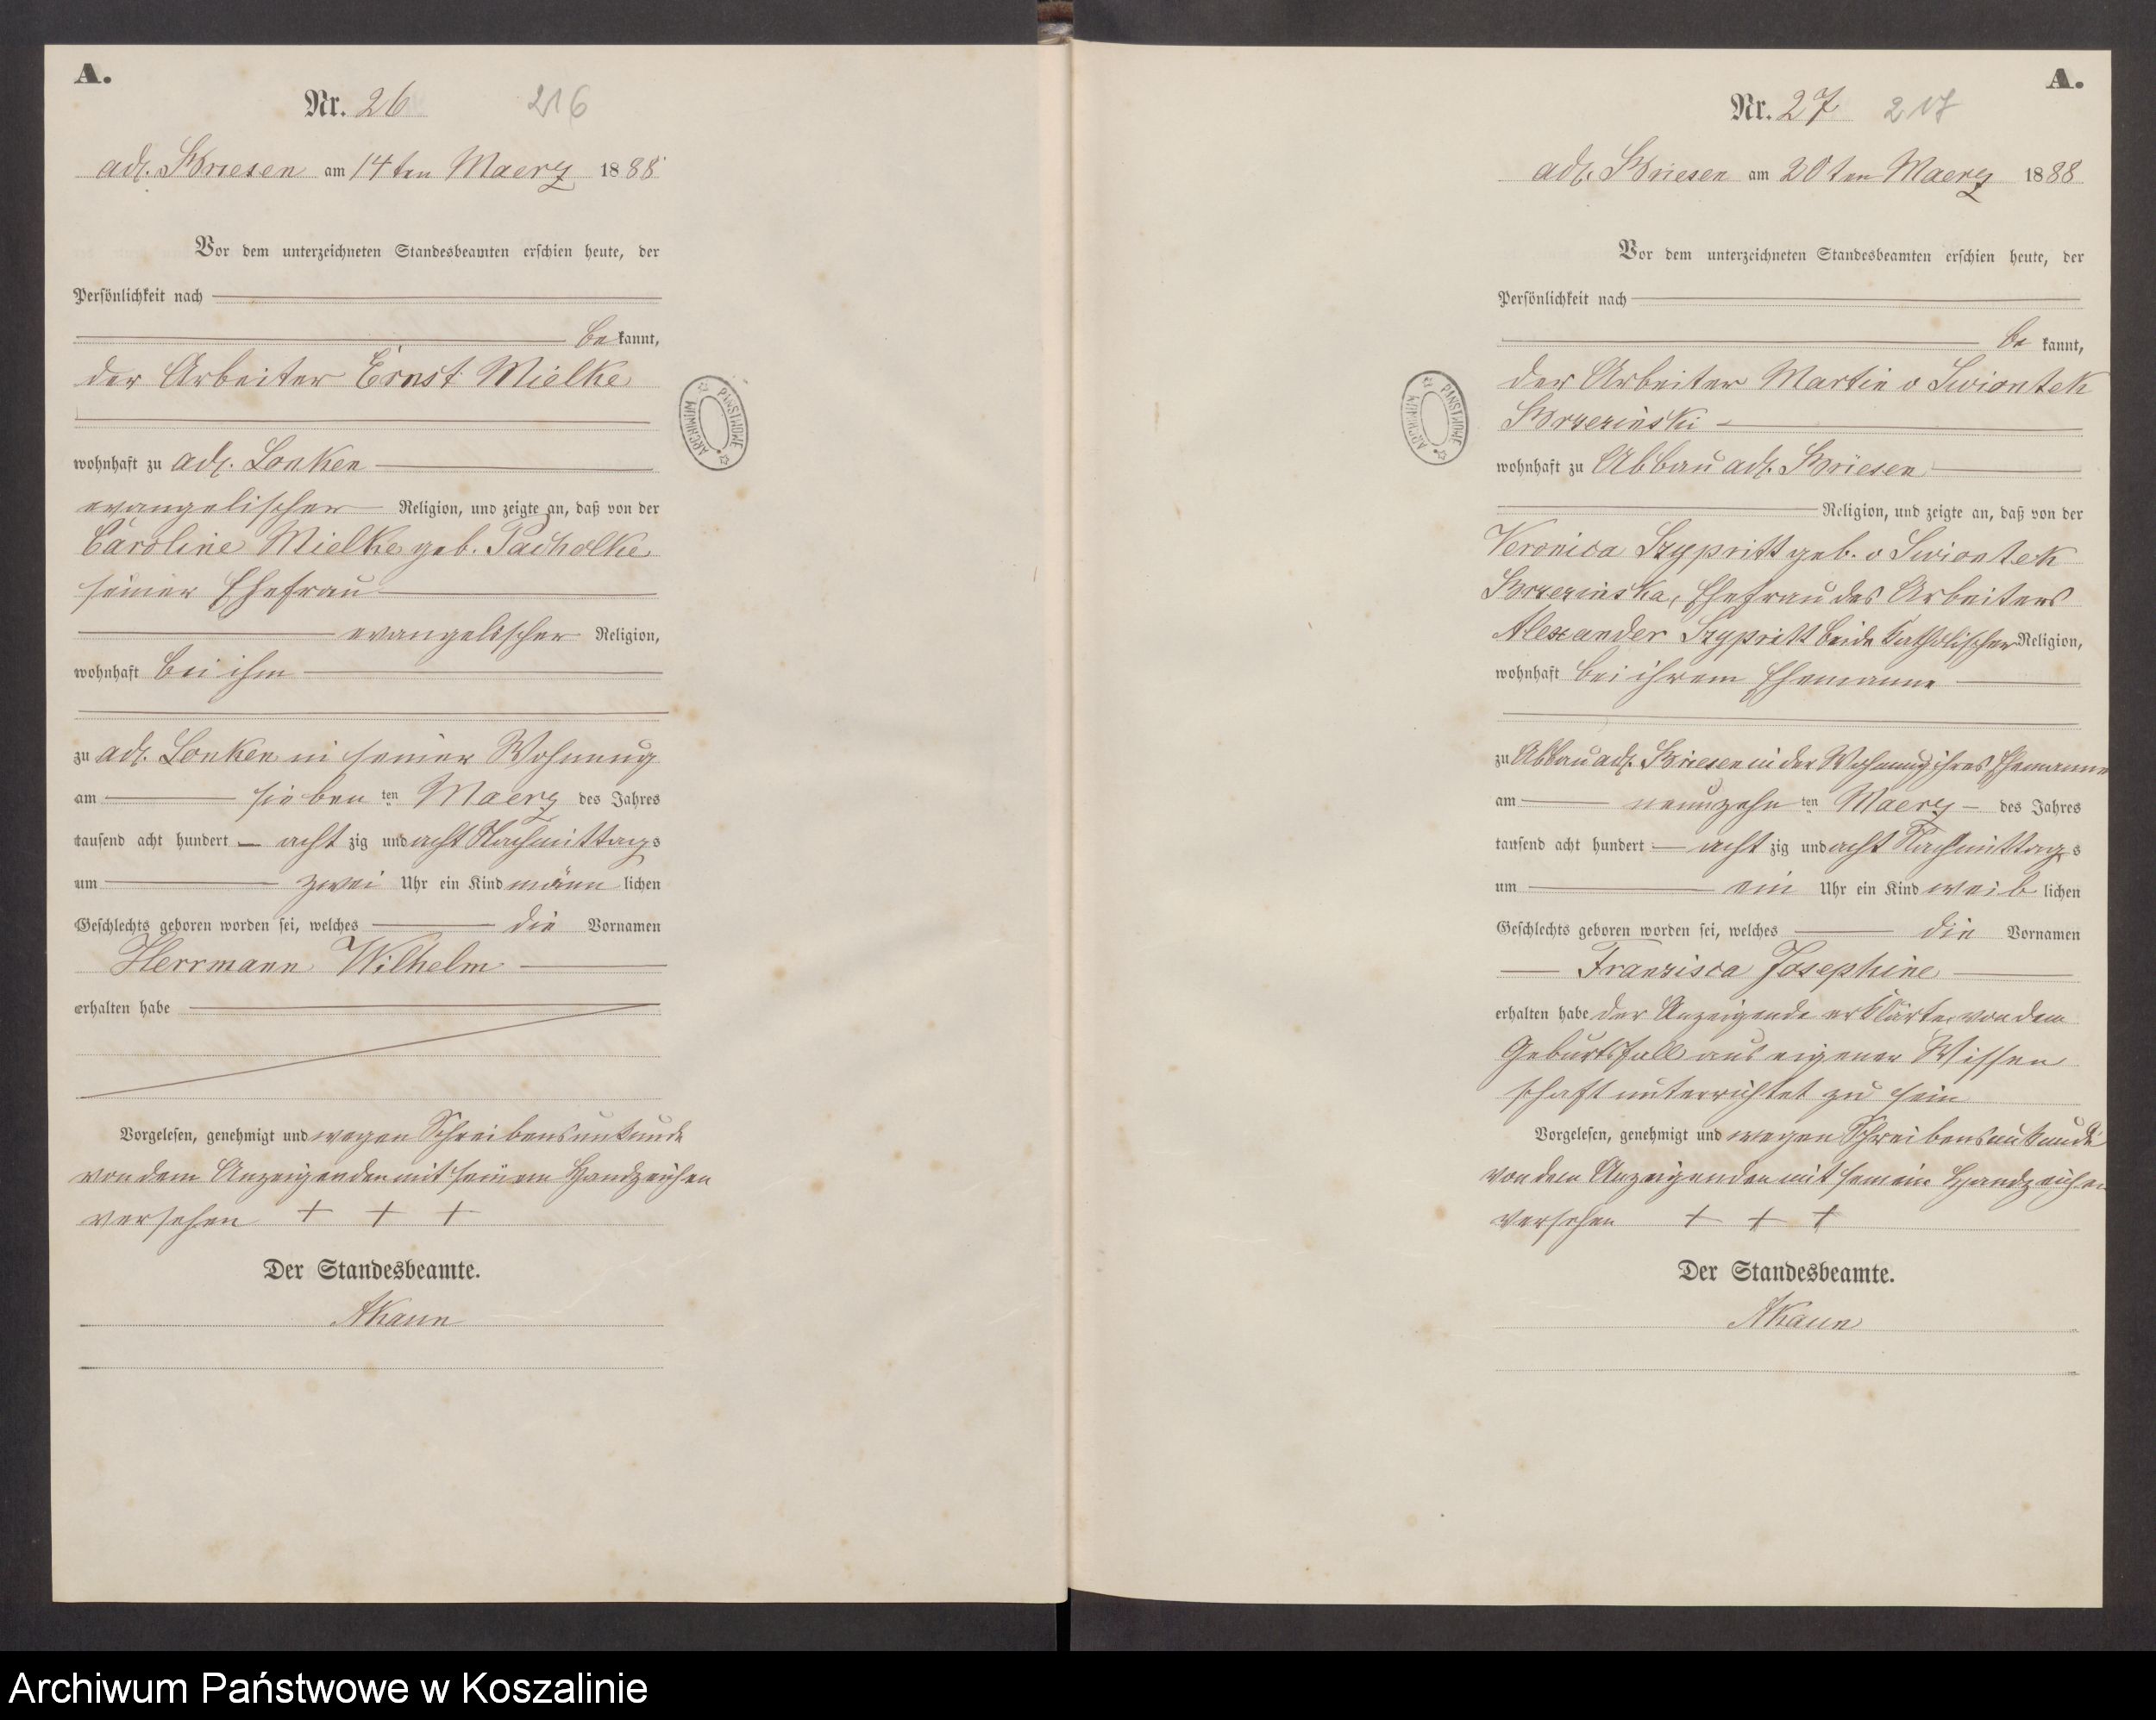 A.
Nr. 26 216
adl. Briesen am 14ten Maerz 1888
Vor dem unterzeichneten Standesbeamten erschien heute, der
Persönlichkeit nach
be kannt,
der Arbeiter Ernst Mielke
wohnhaft zu adl. Lonken
evangelischer Religion, und zeigte an, daß von der
Caroline Mielke geb. Pacholke
seiner Ehefrau
evangelischer Religion,
wohnhaft bei ihm
zu adl. Lonken in seiner Wohnung
am sieben ten Maerz des Jahres
tausend acht hundert acht zig und acht Nachmittags
um zwei Uhr ein Kind männ lichen
Geschlechts geboren worden sei, welches die Vornamen
Herrmann Wilhelm
erhalten habe
Vorgelesen, genehmigt und wegen Schreibensunkunde
von dem Anzeigenden mit seinem Handzeichen
versehen + + +
Der Standesbeamte.
ARCHIWUM PAŃSTWOWE
A.
Nr. 27 217
adl. Briesen am 20ten Maerz 1888
Vor dem unterzeichneten Standesbeamten erschien heute, der
Persönlichkeit nach
be kannt,
der Arbeiter Martin v Swiontek
Brzezinski
wohnhaft zu Abbau adl. Briesen
Religion, und zeigte an, daß von der
Veronica Szypritt geb. v Swiontek
Brzezinska, Ehefrau des Arbeiters
Alexander Szypritt beide katholischer Religion,
wohnhaft bei ihrem Ehemanne
zu Abbau adl. Briesen in der Wohnung ihres Ehemanne
am neunzehn ten Maerz des Jahres
tausend acht hundert acht zig und acht Nachmittags
um ein Uhr ein Kind weib lichen
Geschlechts geboren worden sei, welches die Vornamen
Franzisca Josephine
erhalten habe der Anzeigende erklärte von dem
Geburtsfall aus eigener Wissen
schaft unterrichtet zu sein
Vorgelesen, genehmigt und wegen Schreibensunkunde
von dem Anzeigenden mit seinem Handzeichen
versehen + + +
Der Standesbeamte.
ARCHIWUM PAŃSTWOWE
Archiwum Państwowe w Koszalinie